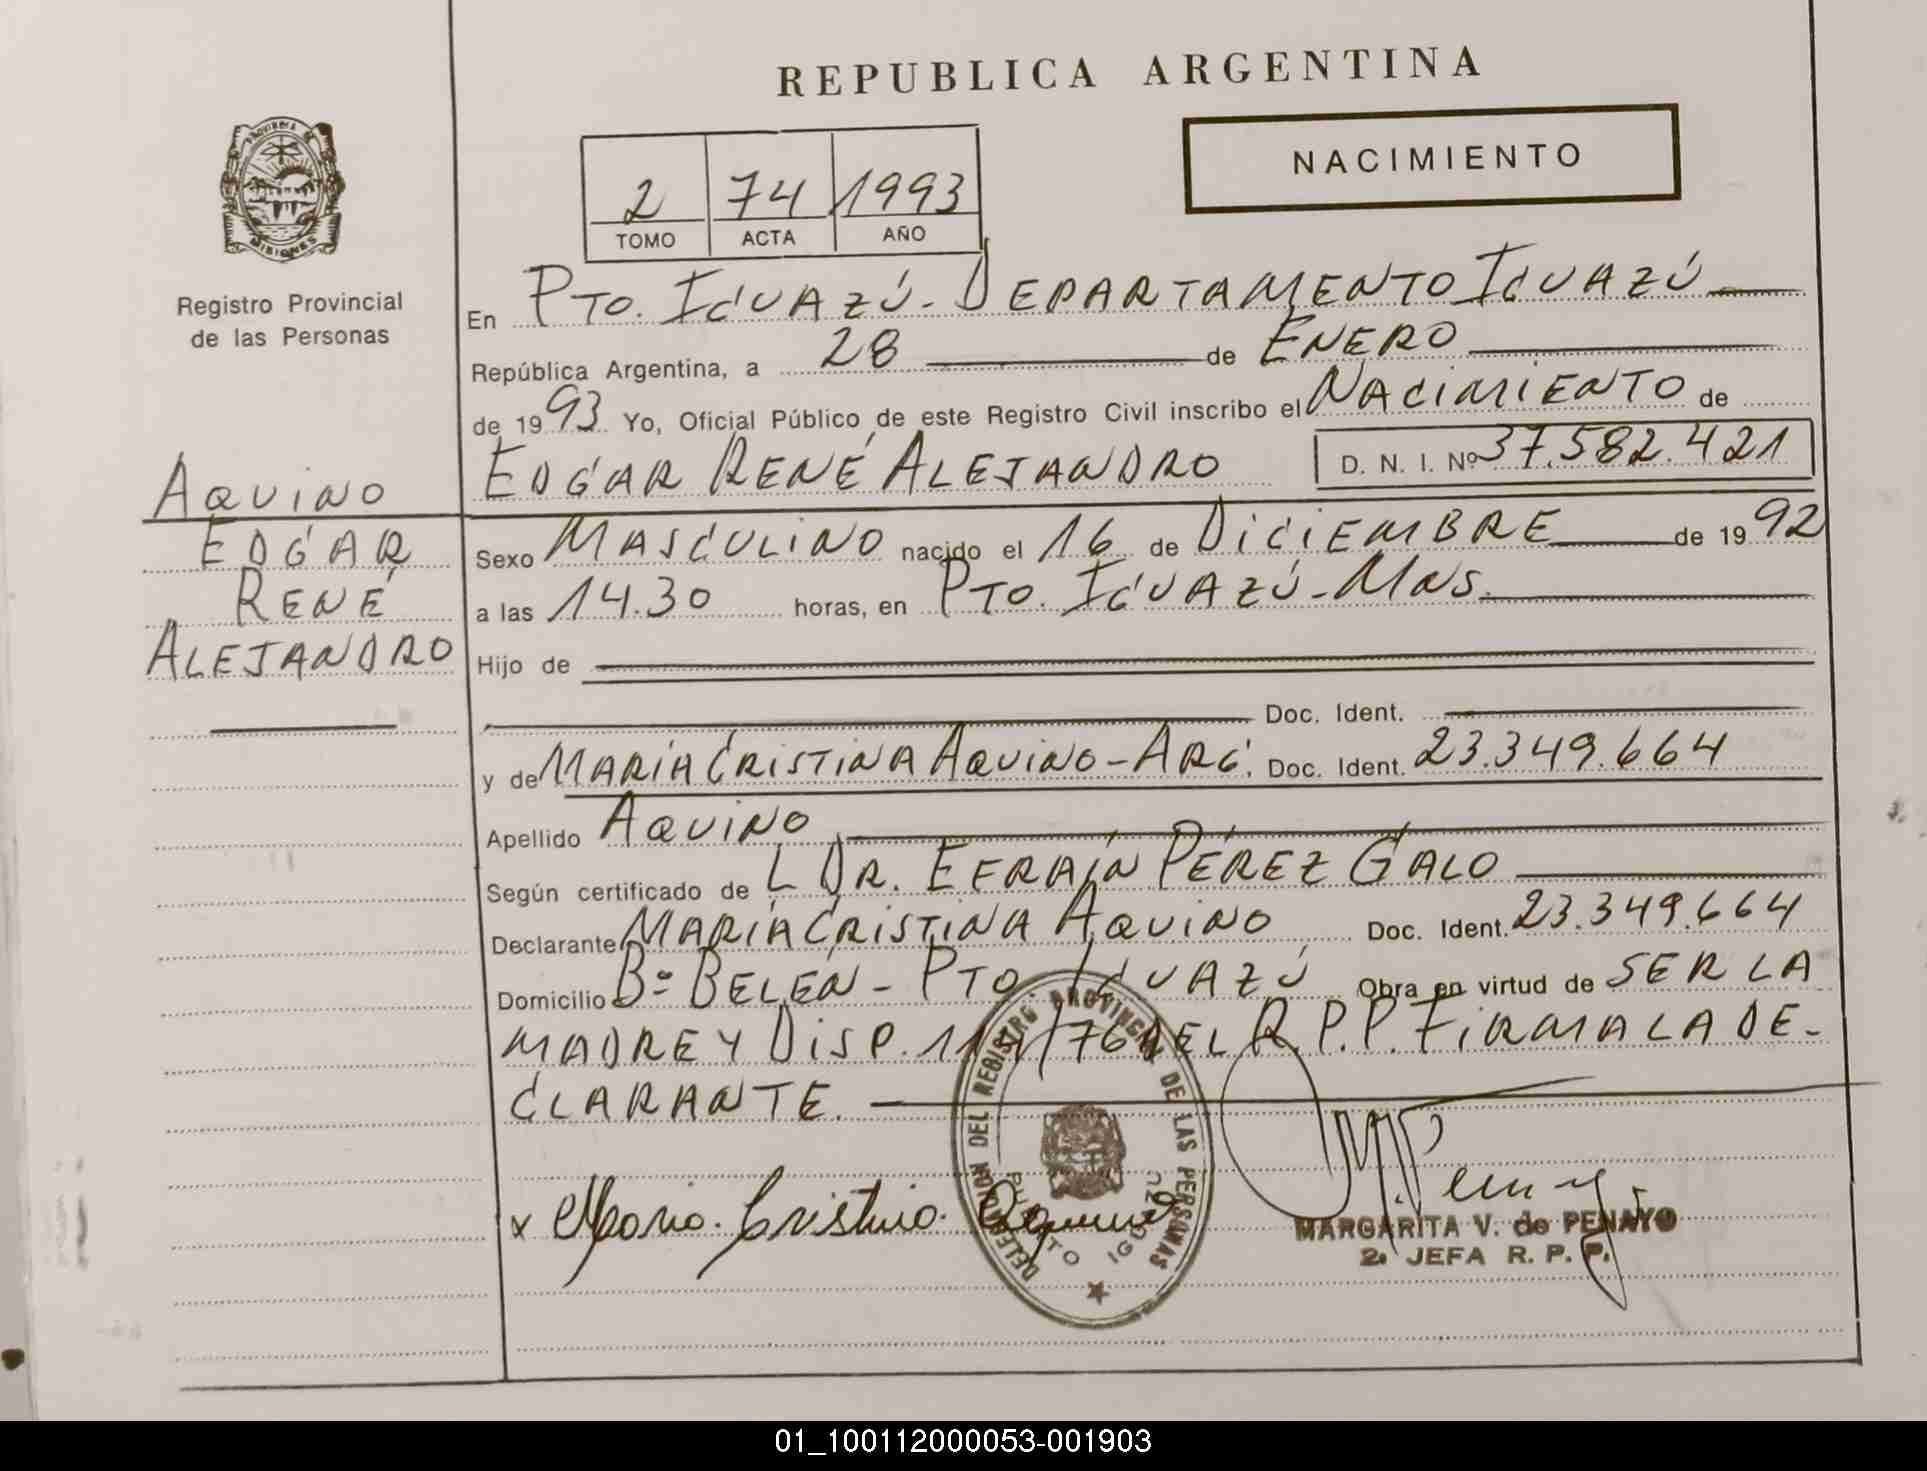 REPUBLICA ARGENTINA
NACIMIENTO
2 74 1993
TOMO ACTA AÑO
PROVINCIA DE
MISIONES
Registro Provincial
de las Personas
En PTO. IGUAZÚ - DEPARTAMENTO IGUAZÚ
República Argentina, a 28 de ENERO
de 1993 Yo, Oficial Público de este Registro Civil inscribo el NACIMIENTO de
EDGAR RENÉ ALEJANDRO D. N. I. Nº 37.582.421
AQUINO
EDGAR
RENÉ
ALEJANDRO
Sexo MASCULINO nacido el 16 de DICIEMBRE de 1992
a las 14.30 horas, en PTO. IGUAZÚ - MNS.
Hijo de
Doc. Ident.
y de MARÍA CRISTINA AQUINO - ARG. Doc. Ident. 23.349.664
Apellido AQUINO
Según certificado de L DR. EFRAÍN PÉREZ GALO
Declarante MARÍA CRISTINA AQUINO Doc. Ident. 23.349.664
Domicilio Bº BELÉN - PTO. IGUAZÚ Obra en virtud de SER LA
MADRE Y DISP. /76 DEL R.P.P. FIRMA LA DE-
CLARANTE.
DELEGACION DEL REGISTRO PROVINCIAL DE LAS PERSONAS
PUERTO IGUAZU
x Maria Cristina Aquino
MARGARITA V. de PENAYO
2ª JEFA R. P. P.
01_100112000053-001903